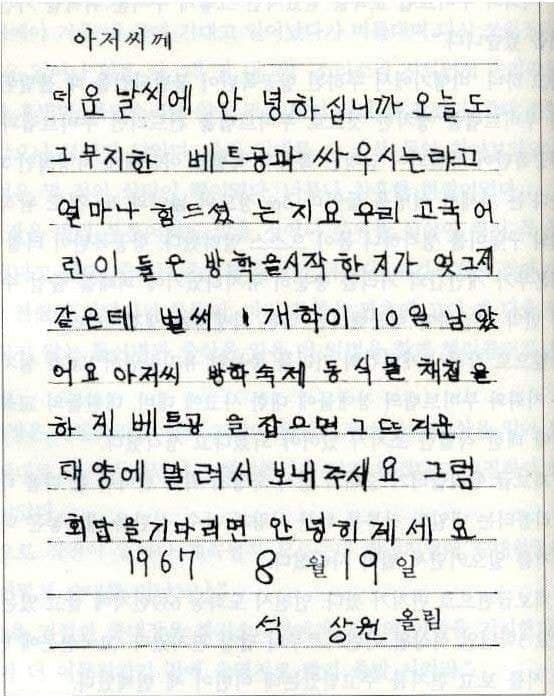 아저씨께
더운 날씨에 안녕하십니까 오늘도
그무지한 베트공과 싸우시느라고
얼마나 힘드셨 는지요 우리 고국 어
린이 들은 방학을시작 한지가 엊그제
같은데 벌써 개학이 10일 남았
어요 아저씨 방학숙제 동식물 채집을
하게 베트공 을 잡으면 그뜨거운
태양에 말려서 보내주서요 그럼
회답을기다리면 안녕히계세요
1967 8월 19일
석 상원 올림